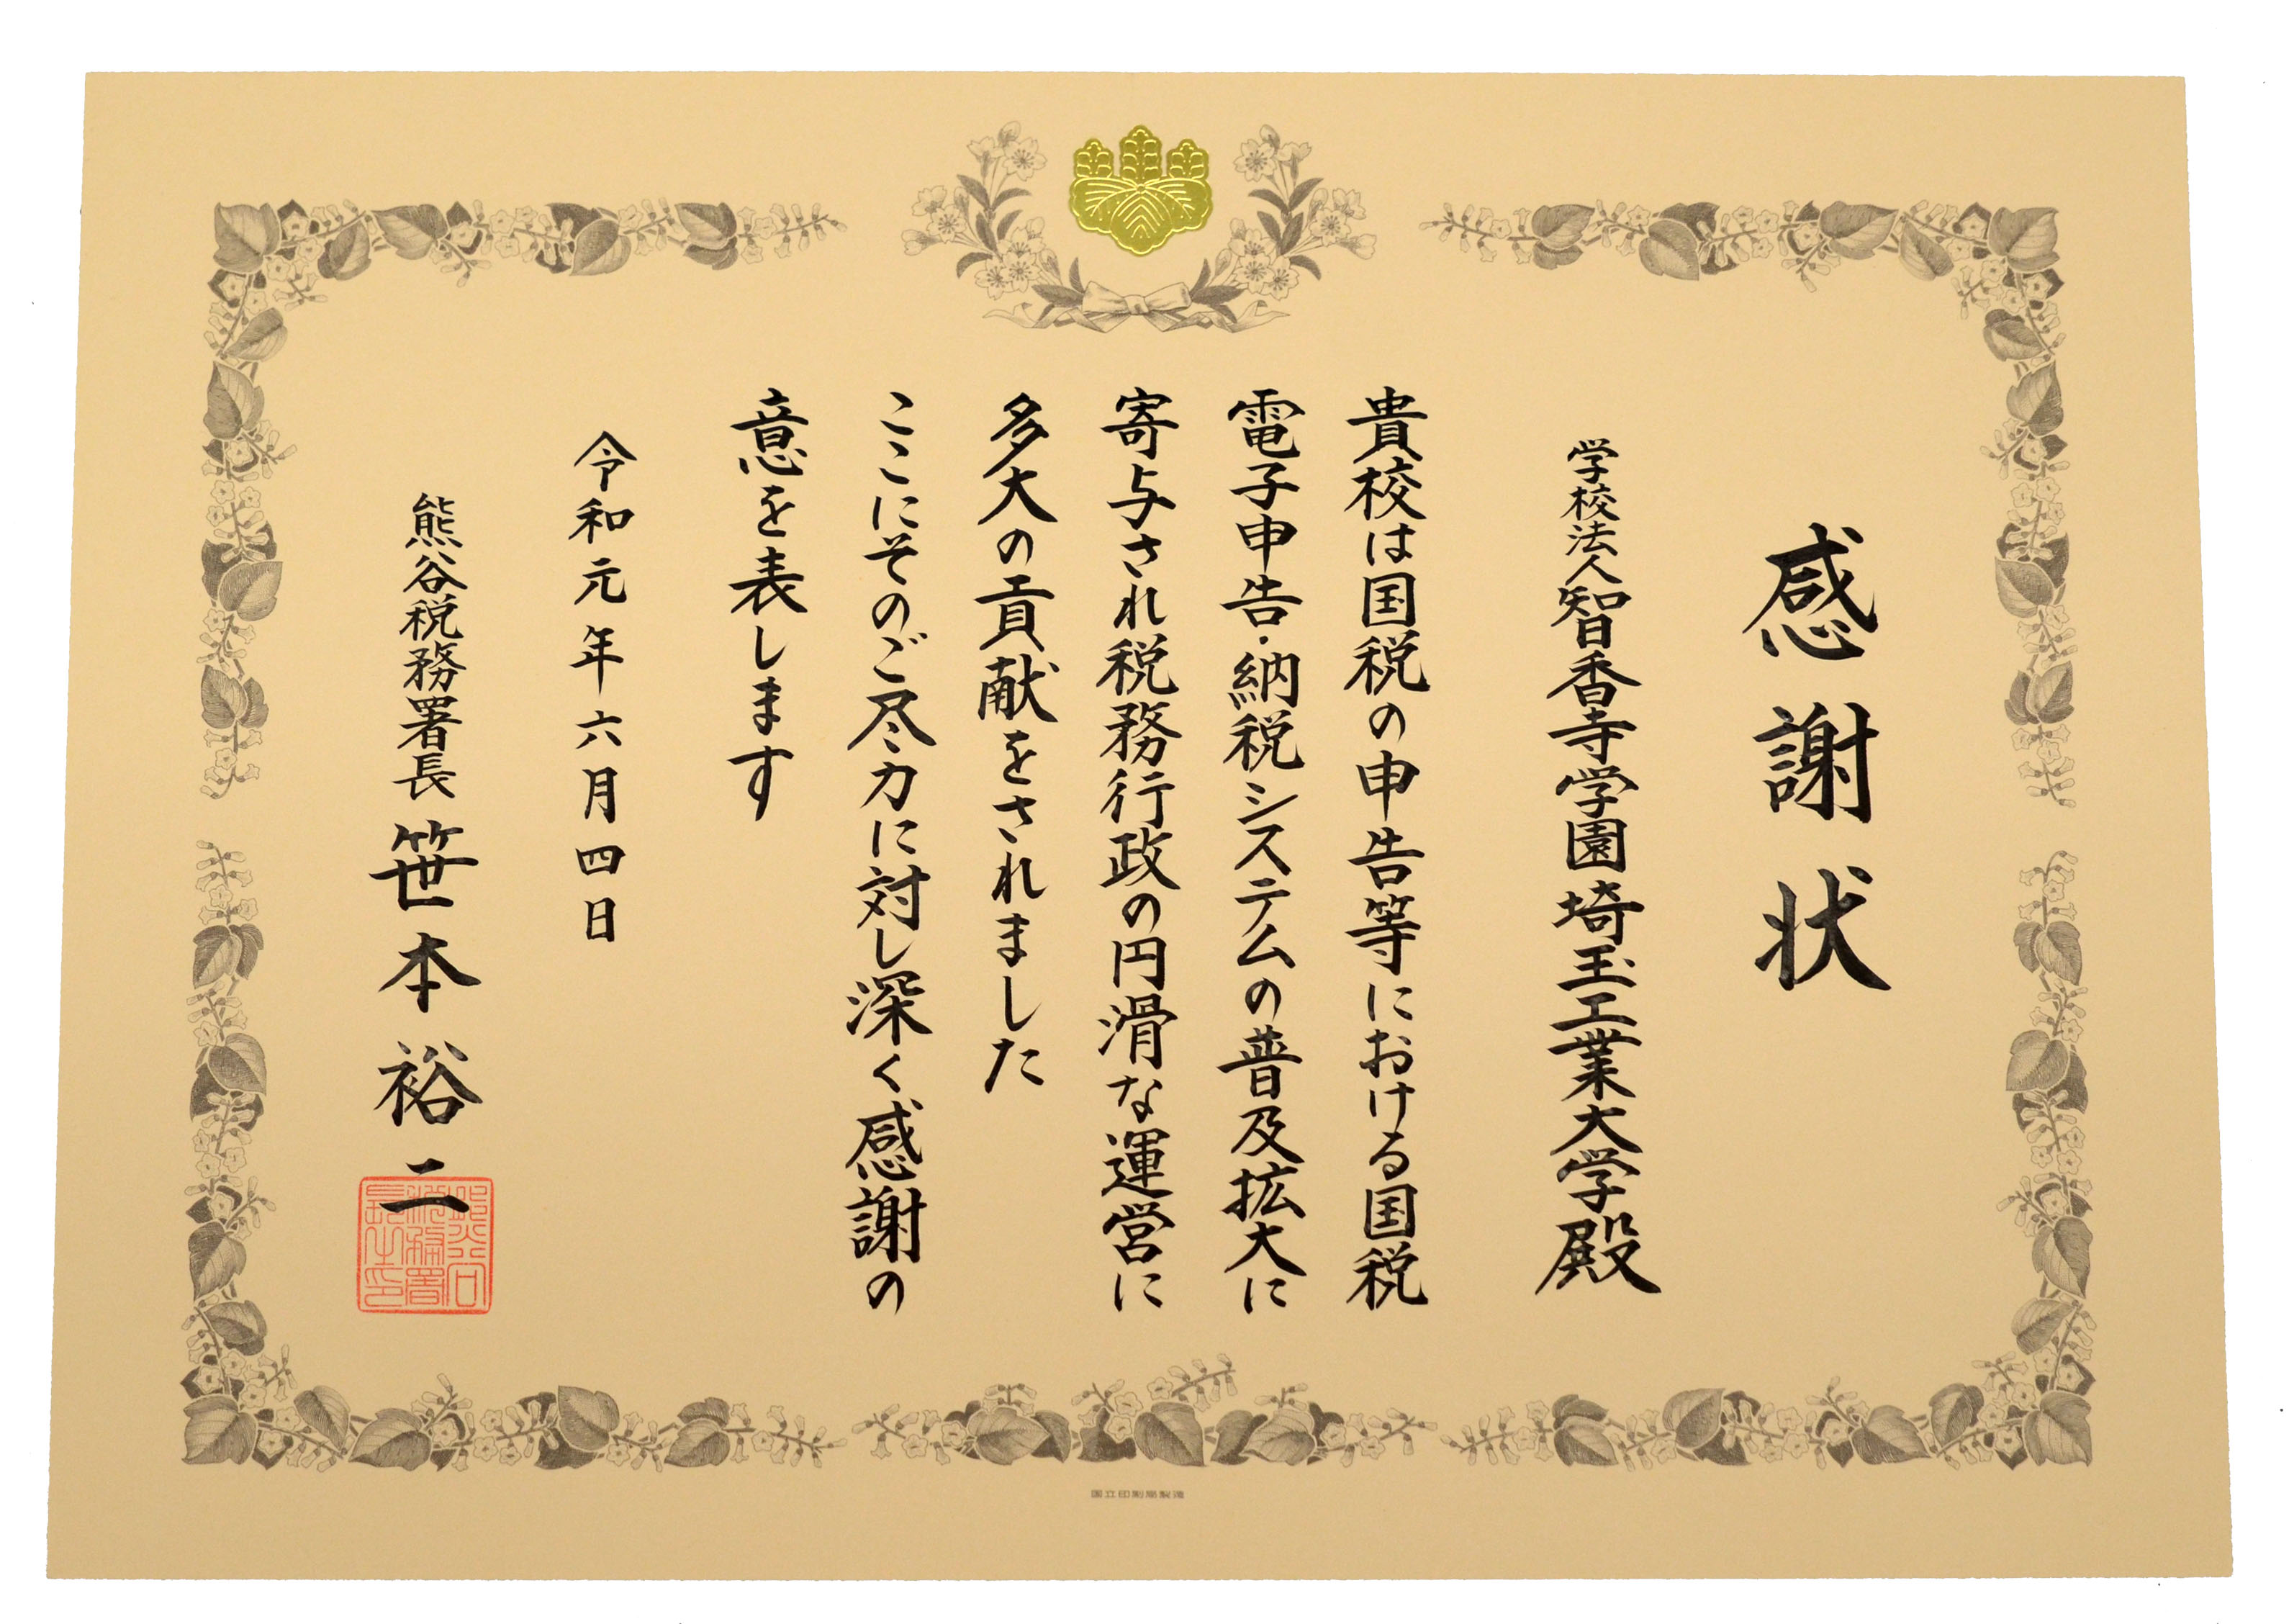 感謝状
学校法人智香寺学園埼玉工業大学殿
貴校は国税の申告等における国税
電子申告・納税システムの普及拡大に
寄与され税務行政の円滑な運営に
多大の貢献をされました
ここにそのご尽力に対し深く感謝の
意を表します
令和元年六月四日
熊谷税務署長 笹本裕二
熊谷税務署長之印
国立印刷局製造